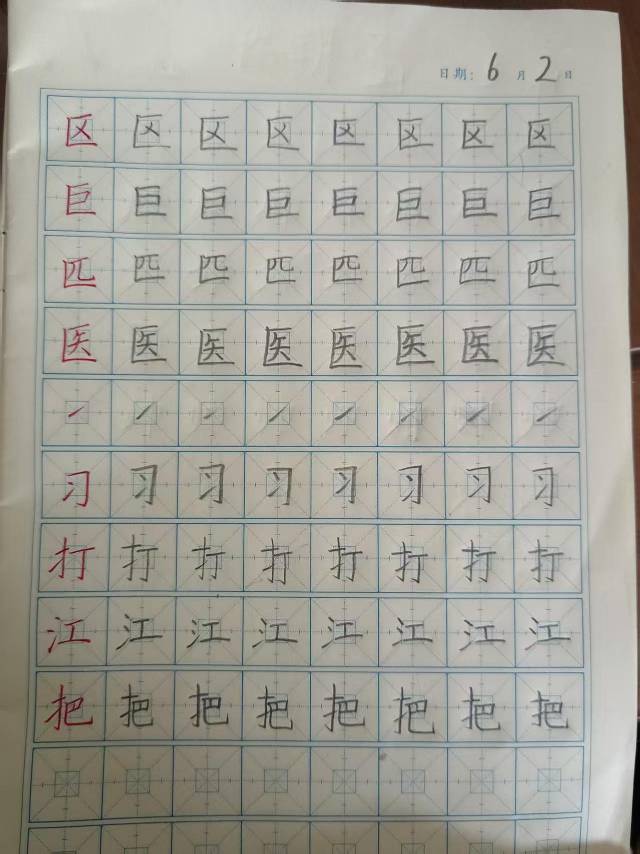 日期: 6 月 2 日
区 区 区 区 区 区 区 区
巨 巨 巨 巨 巨 巨 巨 巨
匹 匹 匹 匹 匹 匹 匹 匹
医 医 医 医 医 医 医 医
㇀ ㇀ ㇀ ㇀ ㇀ ㇀ ㇀ ㇀
习 习 习 习 习 习 习 习
打 打 打 打 打 打 打 打
江 江 江 江 江 江 江 江
把 把 把 把 把 把 把 把